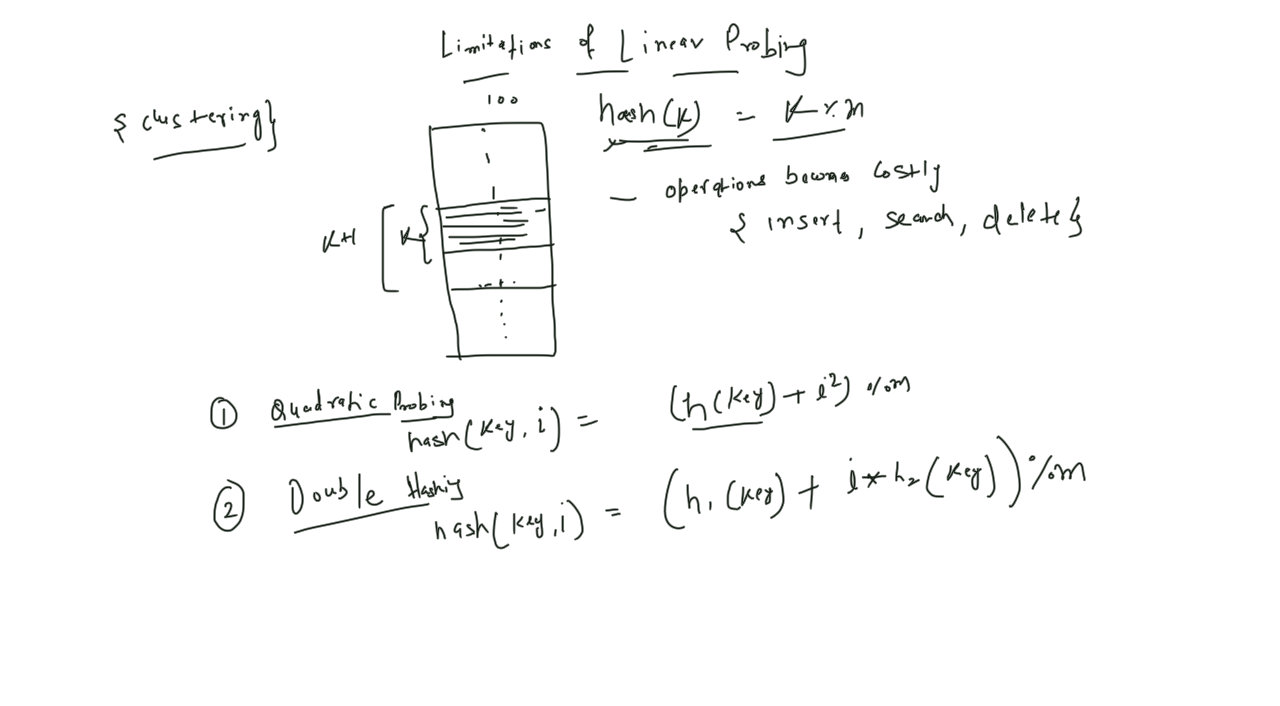 Limitations of Linear Probing
{ clustering }
100
hash(k) = K % m
— operations becomes costly
{ insert, search, delete }
K+1 [ K {
① Quadratic Probing
hash(key, i) = (h(key) + i²) % m
② Double Hashing
hash(key, i) = (h₁(key) + i * h₂(key)) % m